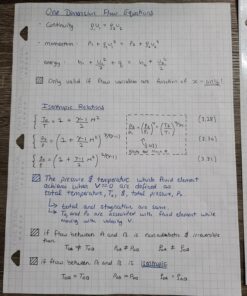 One Dimension Flow Equations
- Continuity ρ₁U₁ = ρ₂U₂
- momentum P₁ + ρ₁U₁² = P₂ + ρ₂U₂²
- energy h₁ + U₁²/2 + q = h₂ + U₂²/2
Only valid if flow variables are function of x - only!
Isentropic Relations
T₀/T = 1 + γ-1/2 M² (3.28)
(3.30)
(3.31)
The pressure & temperature which fluid element
achieves when V=0 are defined as
total temperature, T₀, & total pressure, P₀
↳ total and stagnation are same
↳ T₀ and P₀ are associated with fluid element while
moving with velocity V.
if flow between A and B is nonadiabatic & irreversible
than
T₀A ≠ T₀B P₀A ≠ P₀B ρ₀A ≠ ρ₀B
if flow between A and B is isentropic
T₀A = T₀B P₀A = P₀B ρ₀A = ρ₀B